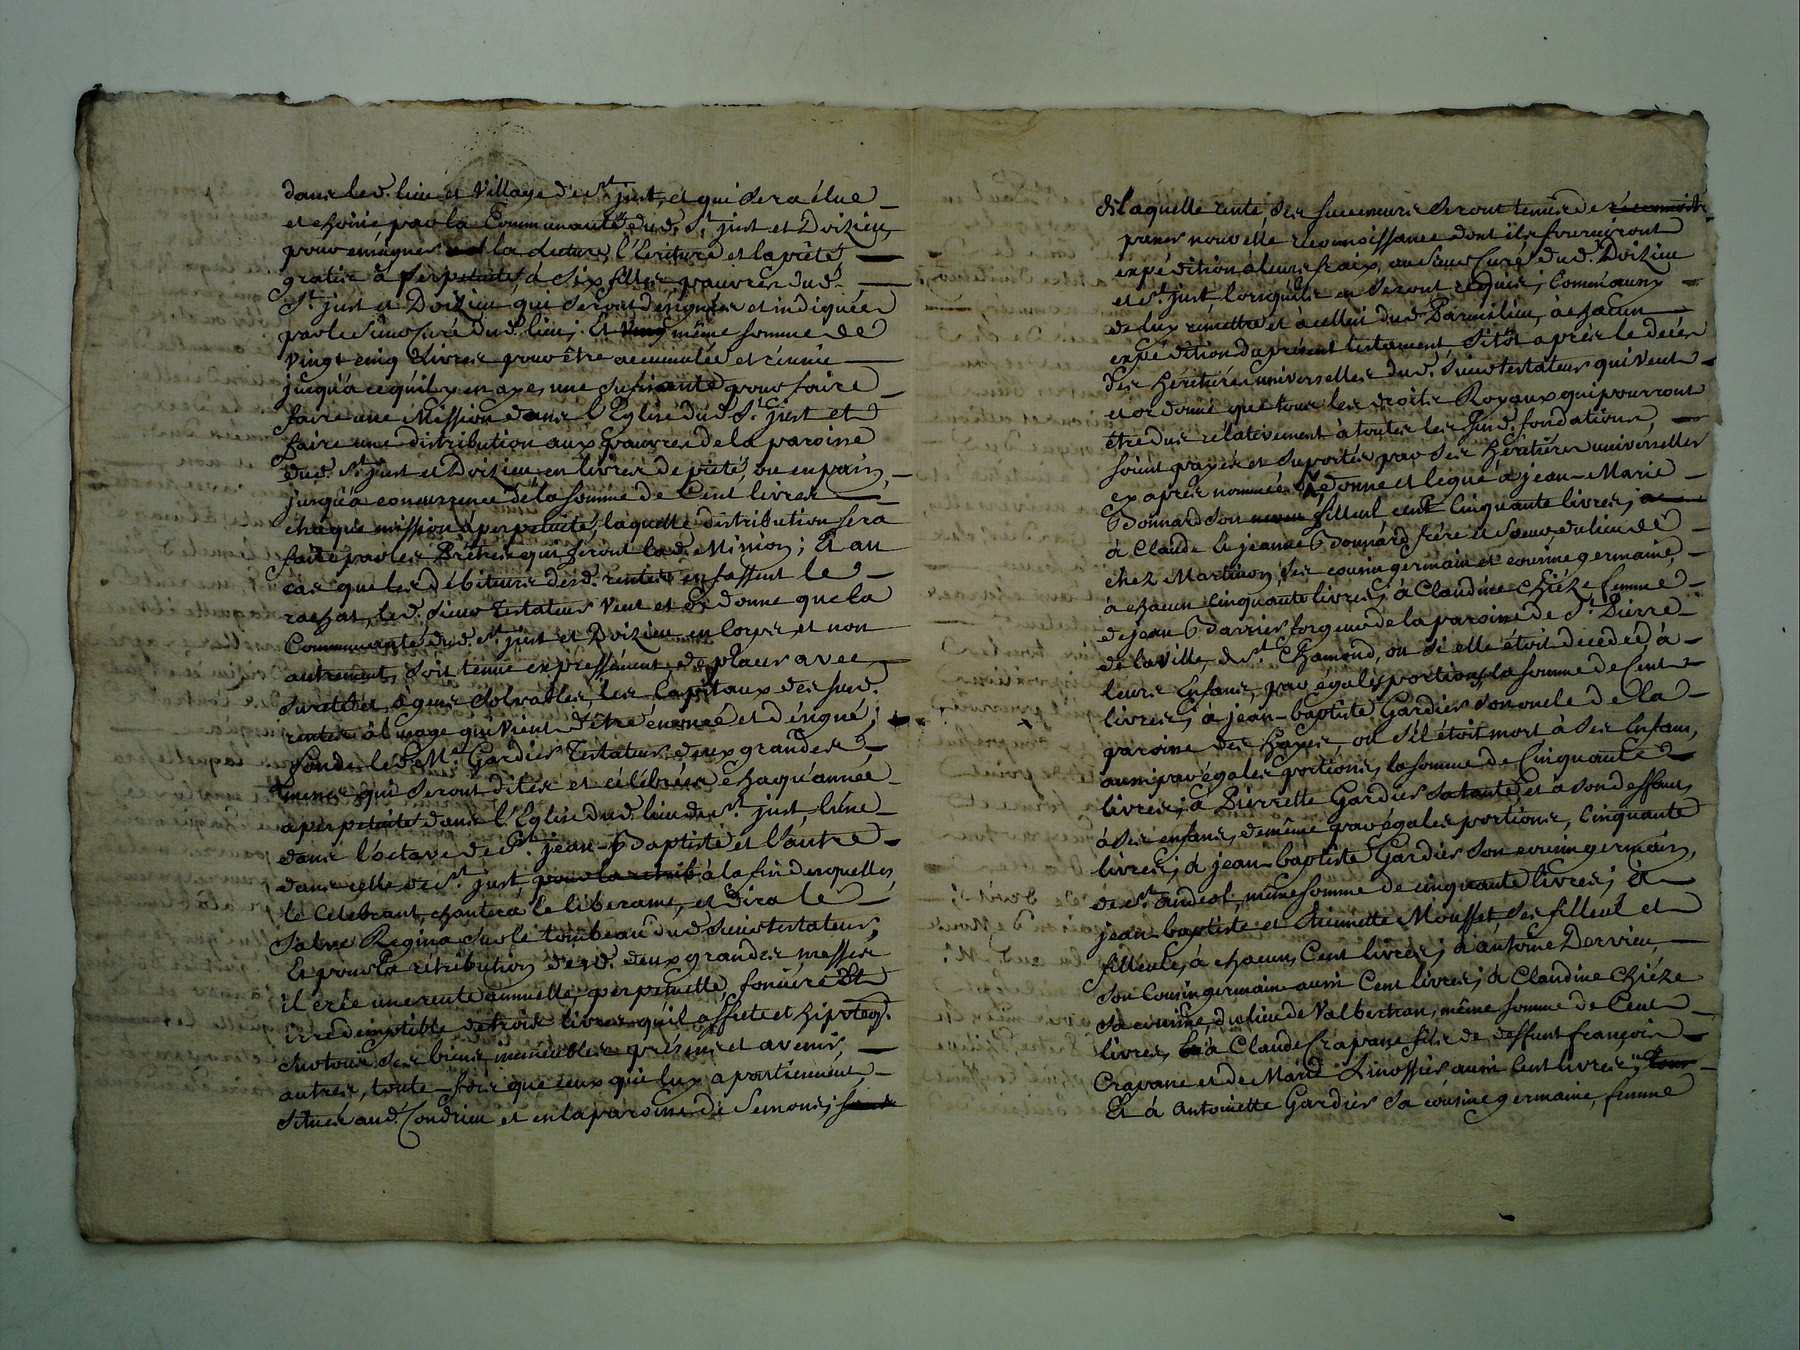 dans led. lieu et Village de St. just, et qui sera élue
et choisie par la Communauté dud. St. just et Doizieu,
pour enseigner la Lecture, l'Ecriture et la piété
gratis à perpetuité, a six filles pauvres dud.
St. just et Doizieu qui seront designées et indiquées
par le Sieur Curé dud. lieu; Et même somme de
Vingt cinq Livres pour être accumulée et réunie
jusqu'à ce qu'il y en aye une sufisante pour faire
faire une Mission dans l'Eglise dud. St. just et
faire une distribution aux pauvres de la paroisse
dud. St. just et Doizieu en livres de pieté, ou en pain,
jusqu'a concurrence de la somme de Cent livres
chaque mission a perpetuité, laquelle distribution sera
faite par les Prêtres qui feront lad. Mission; Et au
cas que les Débiteurs desd. rentes en fassent le
rachat, led. Sieur Testateur Veut et Ordonne que la
Communauté dud. St. just et Doizieu en Corps, et non
autrement, soit tenue expressement de placer avec
sureté et a gens solvables, les Capitaux des susd.
rentes à l'usage qui vient d'être énoncé et désigné;
fonde led. Mr. Gardier Testateur deux grandes
messes qui seront dites et célébrées chaqu'année
a perpetuité dans l'Eglise dud. lieu de St. just, l'une
dans l'octave de St. jean-Baptiste et l'autre
dans celle de St. just pour la retrib. à la fin desquelles
le Celebrant chantera le libera me, et dira le
Salve Regina sur le tombeau dud. Sieur testateur,
Et pour la rétribution desd. deux grandes messes
il crée une rente annuelle, perpetuelle, fonciere et
irredemptible de trois livres qu'il affecte et hipoteq.
sur tous ses biens immeubles présens et avenir,
autres, toute-fois que ceux qui luy apartiennent,
situés aud. Condrieu et en la paroisse de Semons;
de laquelle rente, ses successeurs seront tenus de
passer nouvelle reconnoissance dont ils fourniront
expédition à leurs fraix, au Sieur Curé dud. Doizieu
et St. just lorsqu'ils en seront requis; Comm'aussy
de luy remettre et à celui dud. Parmilieu, à chacun
expédition du présent testament sitôt après le decès
des héritières universelles dud. Sieur testateur qui veut
et ordonne que tous les droits Royaux qui pourront
être dus relativement à toutes les susd. fondations,
soient payés et suportés par ses Héritières universelles
cy après nommées; donne et legue à jean-Marie
Bonnard son filleul cent Cinquante livres;
à Claude et jeanne Bonnard frère et soeur du lieu de
chez Martinon, ses cousin germain et cousine germaine,
à chacun Cinquante livres; à Claudine Chièze, femme
de jean Barrier forgeur de la paroisse de St. Pierre
de la Ville de St. Chamond, ou si elle étoit decedée, à
leurs Enfans, par égales portions, la somme de Cent
livres; à jean-baptiste Gardier son oncle de la
paroisse des hayes, ou s'il étoit mort à ses Enfans,
aussi par égales portions, la somme de Cinquante
livres; à Pierrette Gardier sa tante, et à son deffaut
à ses enfans, de même par égales portions, Cinquante
livres; à jean-baptiste Gardier son cousin germain,
de St. andeol, même somme de cinquante livres; à
jean-baptiste et Antoinette Mousset ses filleul et
filleule, à chacun Cent livres; à antoine Dervieu,
son Cousin germain aussi Cent livres; à Claudine Chièze
sa cousine, du lieu de Valbertran, même somme de Cent
livres, à Claude Crapane fils de deffunt françois
Crapane et de Marie Linossier aussi Cent livres;
Et à Antoinette Gardier sa cousine germaine, femme